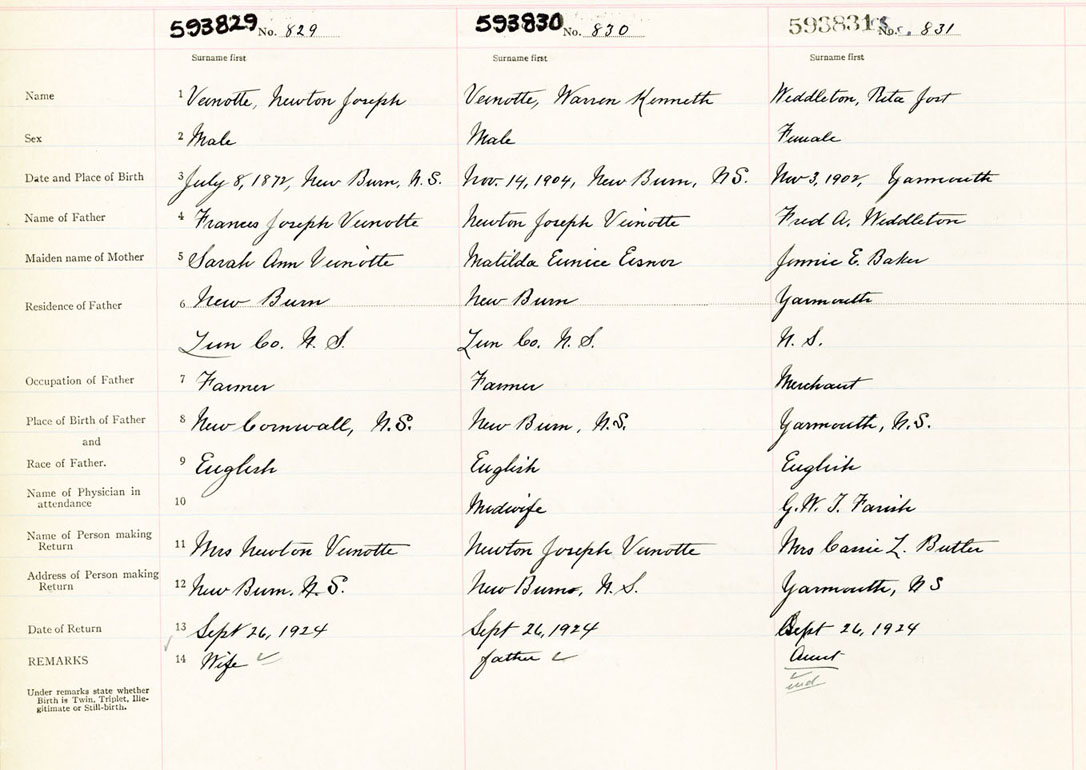 593829 No. 829 593830 No. 830 593831 No. 831
Surname first Surname first Surname first
Name 1 Veinotte, Newton Joseph Veinotte, Warren Kenneth Weddleton, Rita Jost
Sex 2 Male Male Female
Date and Place of Birth 3 July 8, 1872, New Burn, N.S. Nov. 14, 1904, New Burn, N.S. Nov 3, 1902, Yarmouth
Name of Father 4 Frances Joseph Veinotte Newton Joseph Veinotte Fred A. Weddleton
Maiden name of Mother 5 Sarah Ann Veinotte Matilda Eunice Eisnor Jennie E. Baker
Residence of Father 6 New Burn New Burn Yarmouth
Lun Co. N. S. Lun Co. N. S. N. S.
Occupation of Father 7 Farmer Farmer Merchant
Place of Birth of Father 8 New Cornwall, N.S. New Burn, N.S. Yarmouth, N.S.
and
Race of Father. 9 English English English
Name of Physician in
attendance 10 Midwife G. W. T. Farish
Name of Person making
Return 11 Mrs Newton Veinotte Newton Joseph Veinotte Mrs Carrie L. Butler
Address of Person making
Return 12 New Burn. N. S. New Burn, N. S. Yarmouth, N S
Date of Return 13 Sept 26, 1924 Sept 26, 1924 Sept 26, 1924
REMARKS 14 Wife father Aunt
Under remarks state whether
Birth is Twin, Triplet, Ille-
gitimate or Still-birth.